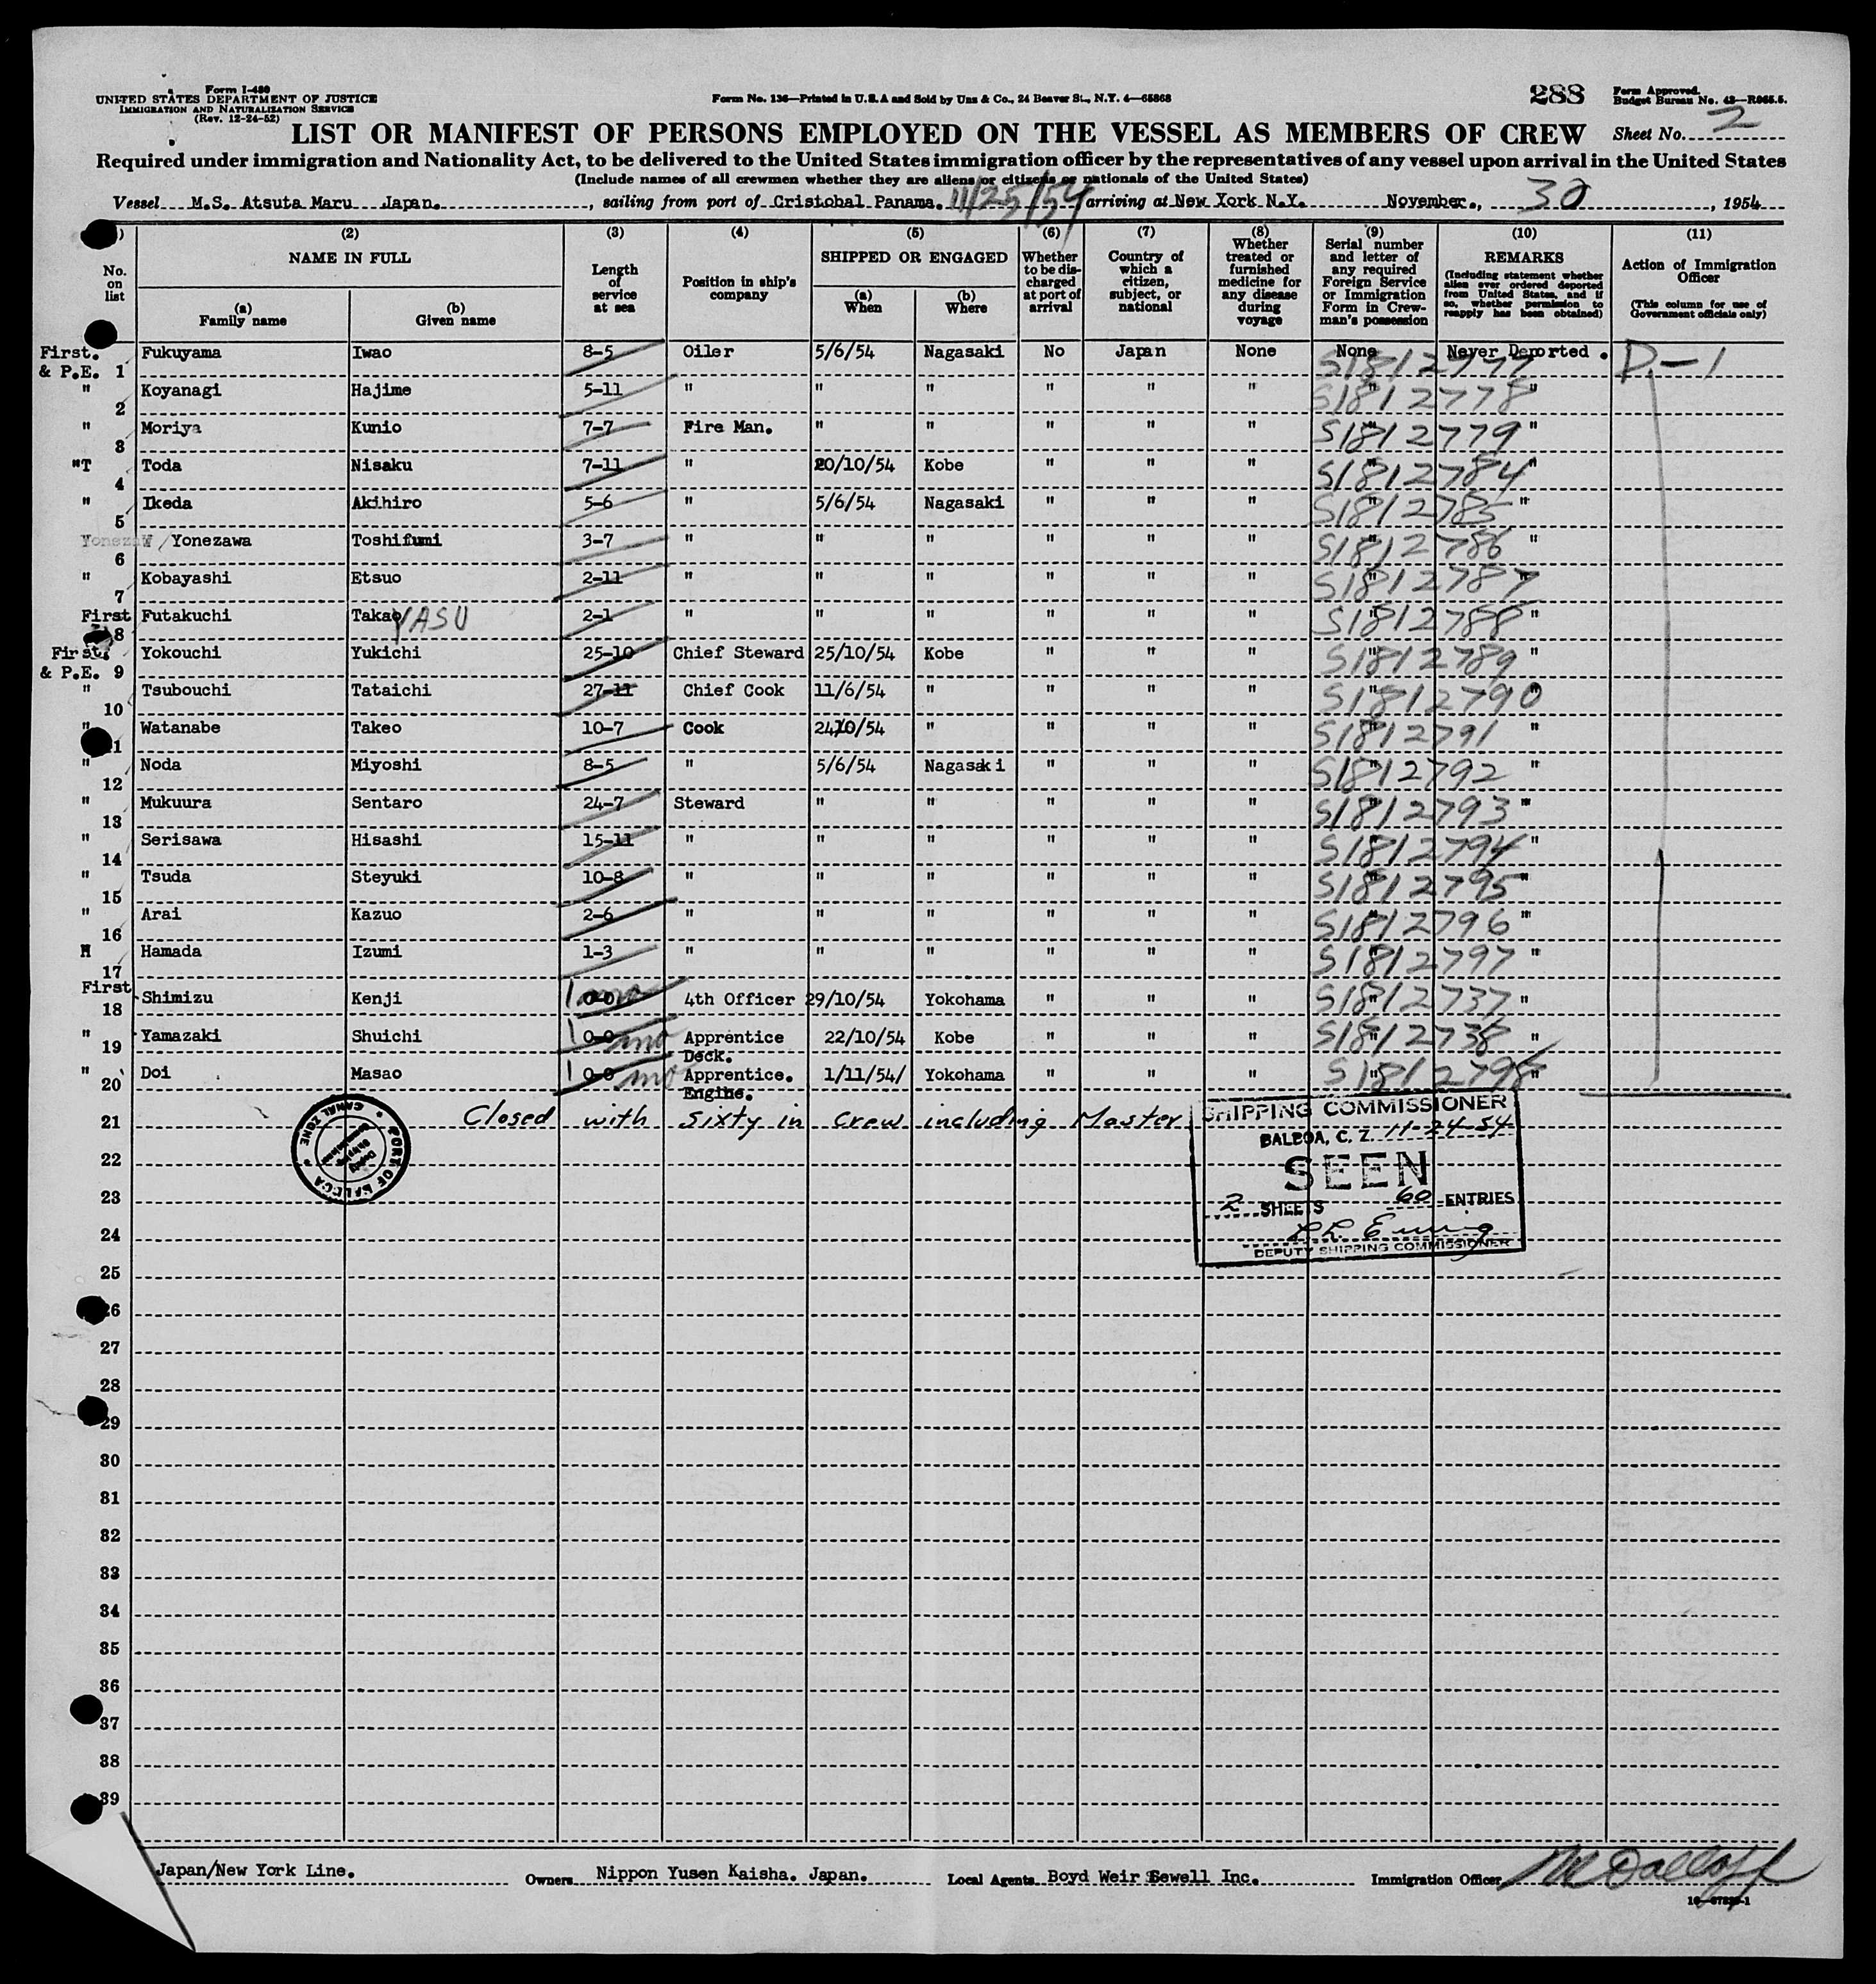 Form I-480
UNITED STATES DEPARTMENT OF JUSTICE
IMMIGRATION AND NATURALIZATION SERVICE
(Rev. 12-24-52)
Form No. 136—Printed in U.S.A and Sold by Unz & Co., 24 Beaver St., N.Y. 4—65868
288
Form Approved.
Budget Bureau No. 43—R065.5.
LIST OR MANIFEST OF PERSONS EMPLOYED ON THE VESSEL AS MEMBERS OF CREW
Sheet No. 2
Required under immigration and Nationality Act, to be delivered to the United States immigration officer by the representatives of any vessel upon arrival in the United States
(Include names of all crewmen whether they are aliens or citizens or nationals of the United States)
Vessel M.S. Atsuta Maru Japan. , sailing from port of Cristobal Panama. 11/25/54 arriving at New York N.Y. November., 30 , 1954
(2) (3) (4) (5) (6) (7) (8) (9) (10) (11)
No. on list
NAME IN FULL
(a) Family name
(b) Given name
Length of service at sea
Position in ship's company
SHIPPED OR ENGAGED
(a) When
(b) Where
Whether to be discharged at port of arrival
Country of which a citizen, subject, or national
Whether treated or furnished medicine for any disease during voyage
Serial number and letter of any required Foreign Service or Immigration Form in Crewman's possession
REMARKS
(Including statement whether alien ever ordered deported from United States, and if so, whether permission to reapply has been obtained)
Action of Immigration Officer
(This column for use of Government officials only)
First. & P.E. 1 Fukuyama Iwao 8-5 Oiler 5/6/54 Nagasaki No Japan None None S1812777 Never Deported . D-1
" 2 Koyanagi Hajime 5-11 " " " " " " " S1812778 "
" 3 Moriya Kunio 7-7 Fire Man. " " " " " " S1812779 "
"T 4 Toda Nisaku 7-11 " 20/10/54 Kobe " " " " S1812784 "
" 5 Ikeda Akihiro 5-6 " 5/6/54 Nagasaki " " " " S1812785 "
6 Yonezawa Toshifumi 3-7 " " " " " " " S1812786 "
" 7 Kobayashi Etsuo 2-11 " " " " " " " S1812787 "
First 8 Futakuchi Takao YASU 2-1 " " " " " " " S1812788 "
First. & P.E. 9 Yokouchi Yukichi 25-10 Chief Steward 25/10/54 Kobe " " " " S1812789 "
" 10 Tsubouchi Tataichi 27-11 Chief Cook 11/6/54 " " " " " S1812790 "
" 11 Watanabe Takeo 10-7 Cook 24/10/54 " " " " " S1812791 "
" 12 Noda Miyoshi 8-5 " 5/6/54 Nagasaki " " " " S1812792 "
" 13 Mukuura Sentaro 24-7 Steward " " " " " " S1812793 "
" 14 Serisawa Hisashi 15-11 " " " " " " " S1812794 "
" 15 Tsuda Steyuki 10-8 " " " " " " " S1812795 "
" 16 Arai Kazuo 2-6 " " " " " " " S1812796 "
" 17 Hamada Izumi 1-3 " " " " " " " S1812797 "
First 18 Shimizu Kenji 0-0 1 mo 4th Officer 29/10/54 Yokohama " " " " S1812737 "
" 19 Yamazaki Shuichi 0-0 1 mo Apprentice Deck. 22/10/54 Kobe " " " " S1812738 "
" 20 Doi Masao 0-0 1 mo Apprentice. Engine. 1/11/54/ Yokohama " " " " S1812798 "
21 Closed with sixty in crew including Master
SHIPPING COMMISSIONER
BALBOA, C. Z. 11-24-54
SEEN
2 SHEETS 60 ENTRIES
DEPUTY SHIPPING COMMISSIONER
PORT OF BALBOA
CANAL ZONE
Deputy Shipping Commissioner
22
23
24
25
26
27
28
29
30
31
32
33
34
35
36
37
38
39
Japan/New York Line.
Owners Nippon Yusen Kaisha. Japan.
Local Agents Boyd Weir Sewell Inc.
Immigration Officer